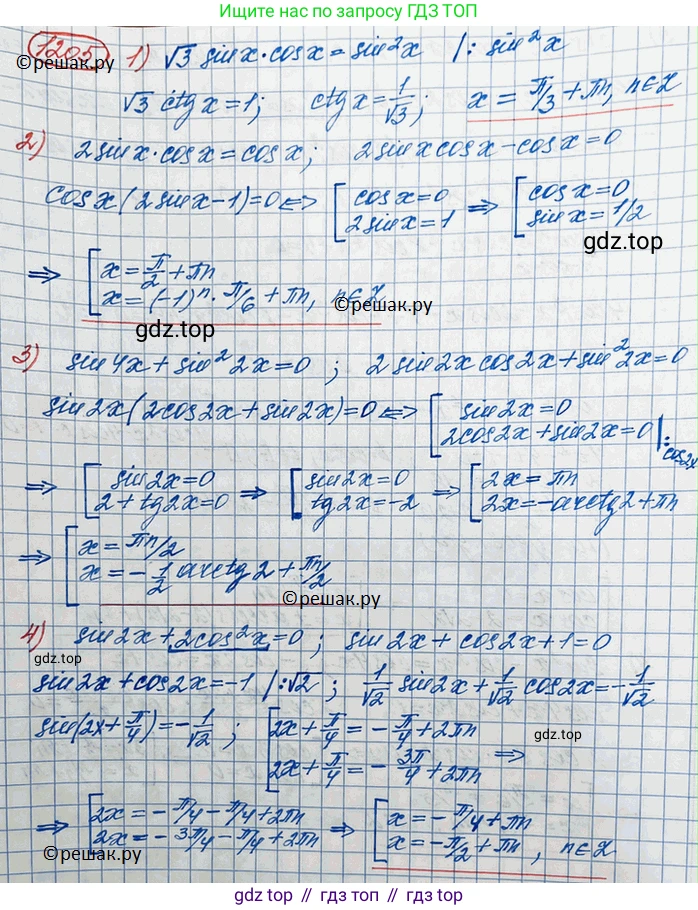 Ищите ответы по запросу ГДЗ ТОП
1205 1) √3 sinx·cosx = sin²x |: sin²x
©решак.ру
√3 ctgx = 1; ctgx = 1/√3; x = π/3 + πn, n∈Z
2) 2sinx·cosx = cosx; 2sinxcosx - cosx = 0
cosx(2sinx-1)=0 <=> [ cosx=0 2sinx=1 => [ cosx=0 sinx=1/2
gdz.top
=> [ x = π/2 + πn x = (-1)ⁿ·π/6 + πn, n∈Z
©решак.ру
gdz.top
3) sin4x + sin²2x = 0 ; 2sin2xcos2x + sin²2x = 0
sin2x(2cos2x + sin2x) = 0 <=> [ sin2x=0 2cos2x+sin2x=0 |: cos2x
=> [ sin2x=0 2+tg2x=0 => [ sin2x=0 tg2x=-2 => [ 2x=πn 2x=-arctg2+πn
=> [ x = πn/2 x = -1/2 arctg2 + πn/2
©решак.ру
4) sin2x + 2cos²x = 0 ; sin2x + cos2x + 1 = 0
gdz.top
sin2x + cos2x = -1 |:√2 ; 1/√2 sin2x + 1/√2 cos2x = -1/√2
sin(2x+π/4) = -1/√2 ; [ 2x + π/4 = -π/4 + 2πn 2x + π/4 = -3π/4 + 2πn =>
gdz.top
=> [ 2x = -π/4 - π/4 + 2πn 2x = -3π/4 - π/4 + 2πn => [ x = -π/4 + πn x = -π/2 + πn , n∈Z
©решак.ру
©решак.ру
gdz top // гдз топ // gdz.top